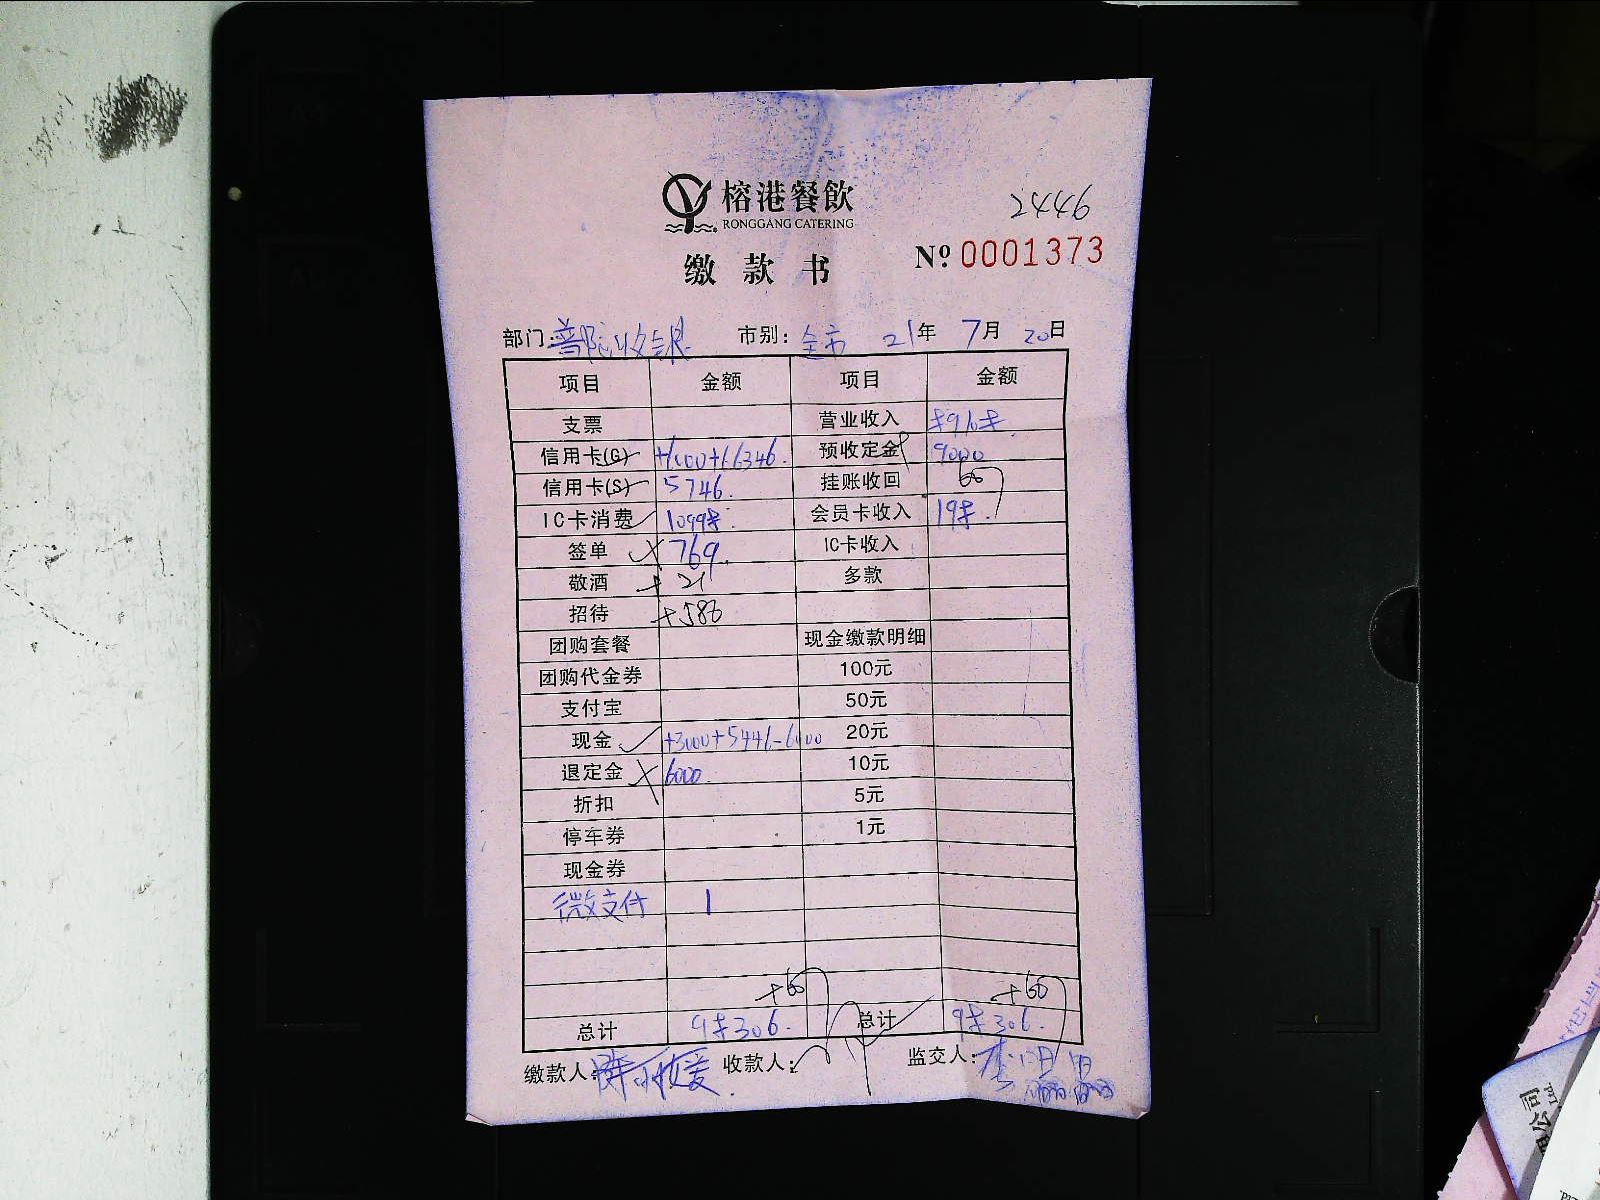 榕港餐飲
RONGGANG CATERING
2446
缴款书
Nº 0001373
部门: 收银 市别: 全市 21年 7月 20日
项目 金额 项目 金额
支票 营业收入
信用卡(G) 预收定金 9000
信用卡(S) 5746. 挂账收回 60
IC卡消费 会员卡收入
签单 769. IC卡收入
敬酒 + 21 多款
招待 +586
团购套餐 现金缴款明细
团购代金券 100元
支付宝 50元
现金 +3000+5446-6000 20元
退定金 6000 10元
折扣 5元
停车券 1元
现金券
微支付 1
+60 +60
总计 总计
缴款人: 收款人: 监交人:
公司